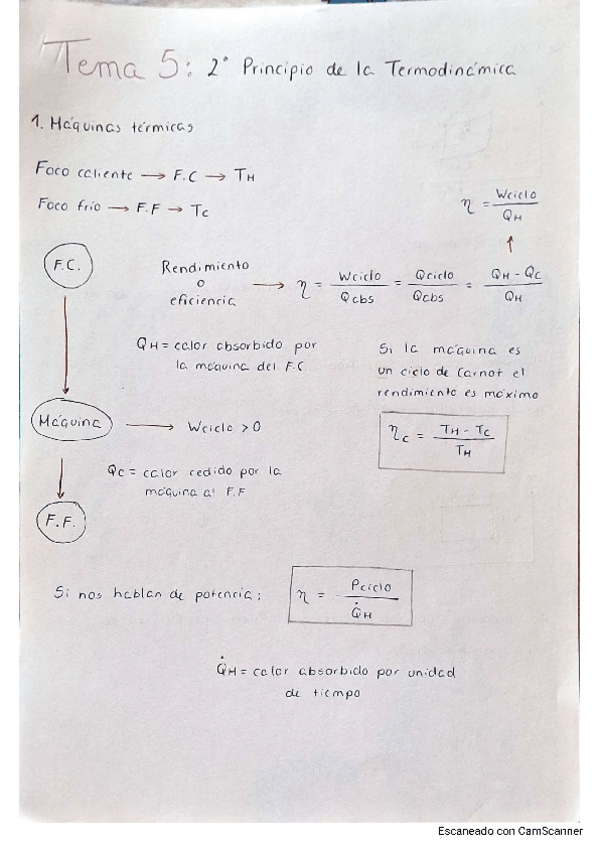 Tema 5: 2° Principio de la Termodinámica
1. Máquinas térmicas
Foco caliente → F.C → TH
Foco frío → F.F → Tc
η = Wciclo / QH
↑
F.C.
Rendimiento
o
eficiencia
→ η = Wciclo / Qabs = Qciclo / Qabs = QH - Qc / QH
QH = calor absorbido por
la máquina del F.C
Si la máquina es
un ciclo de Carnot el
rendimiento es máximo
ηc = TH - Tc / TH
Máquina → Wciclo > 0
Qc = calor cedido por la
máquina al F.F
F.F.
Si nos hablan de potencia: η = Pciclo / Q̇H
Q̇H = calor absorbido por unidad
de tiempo
Escaneado con CamScanner